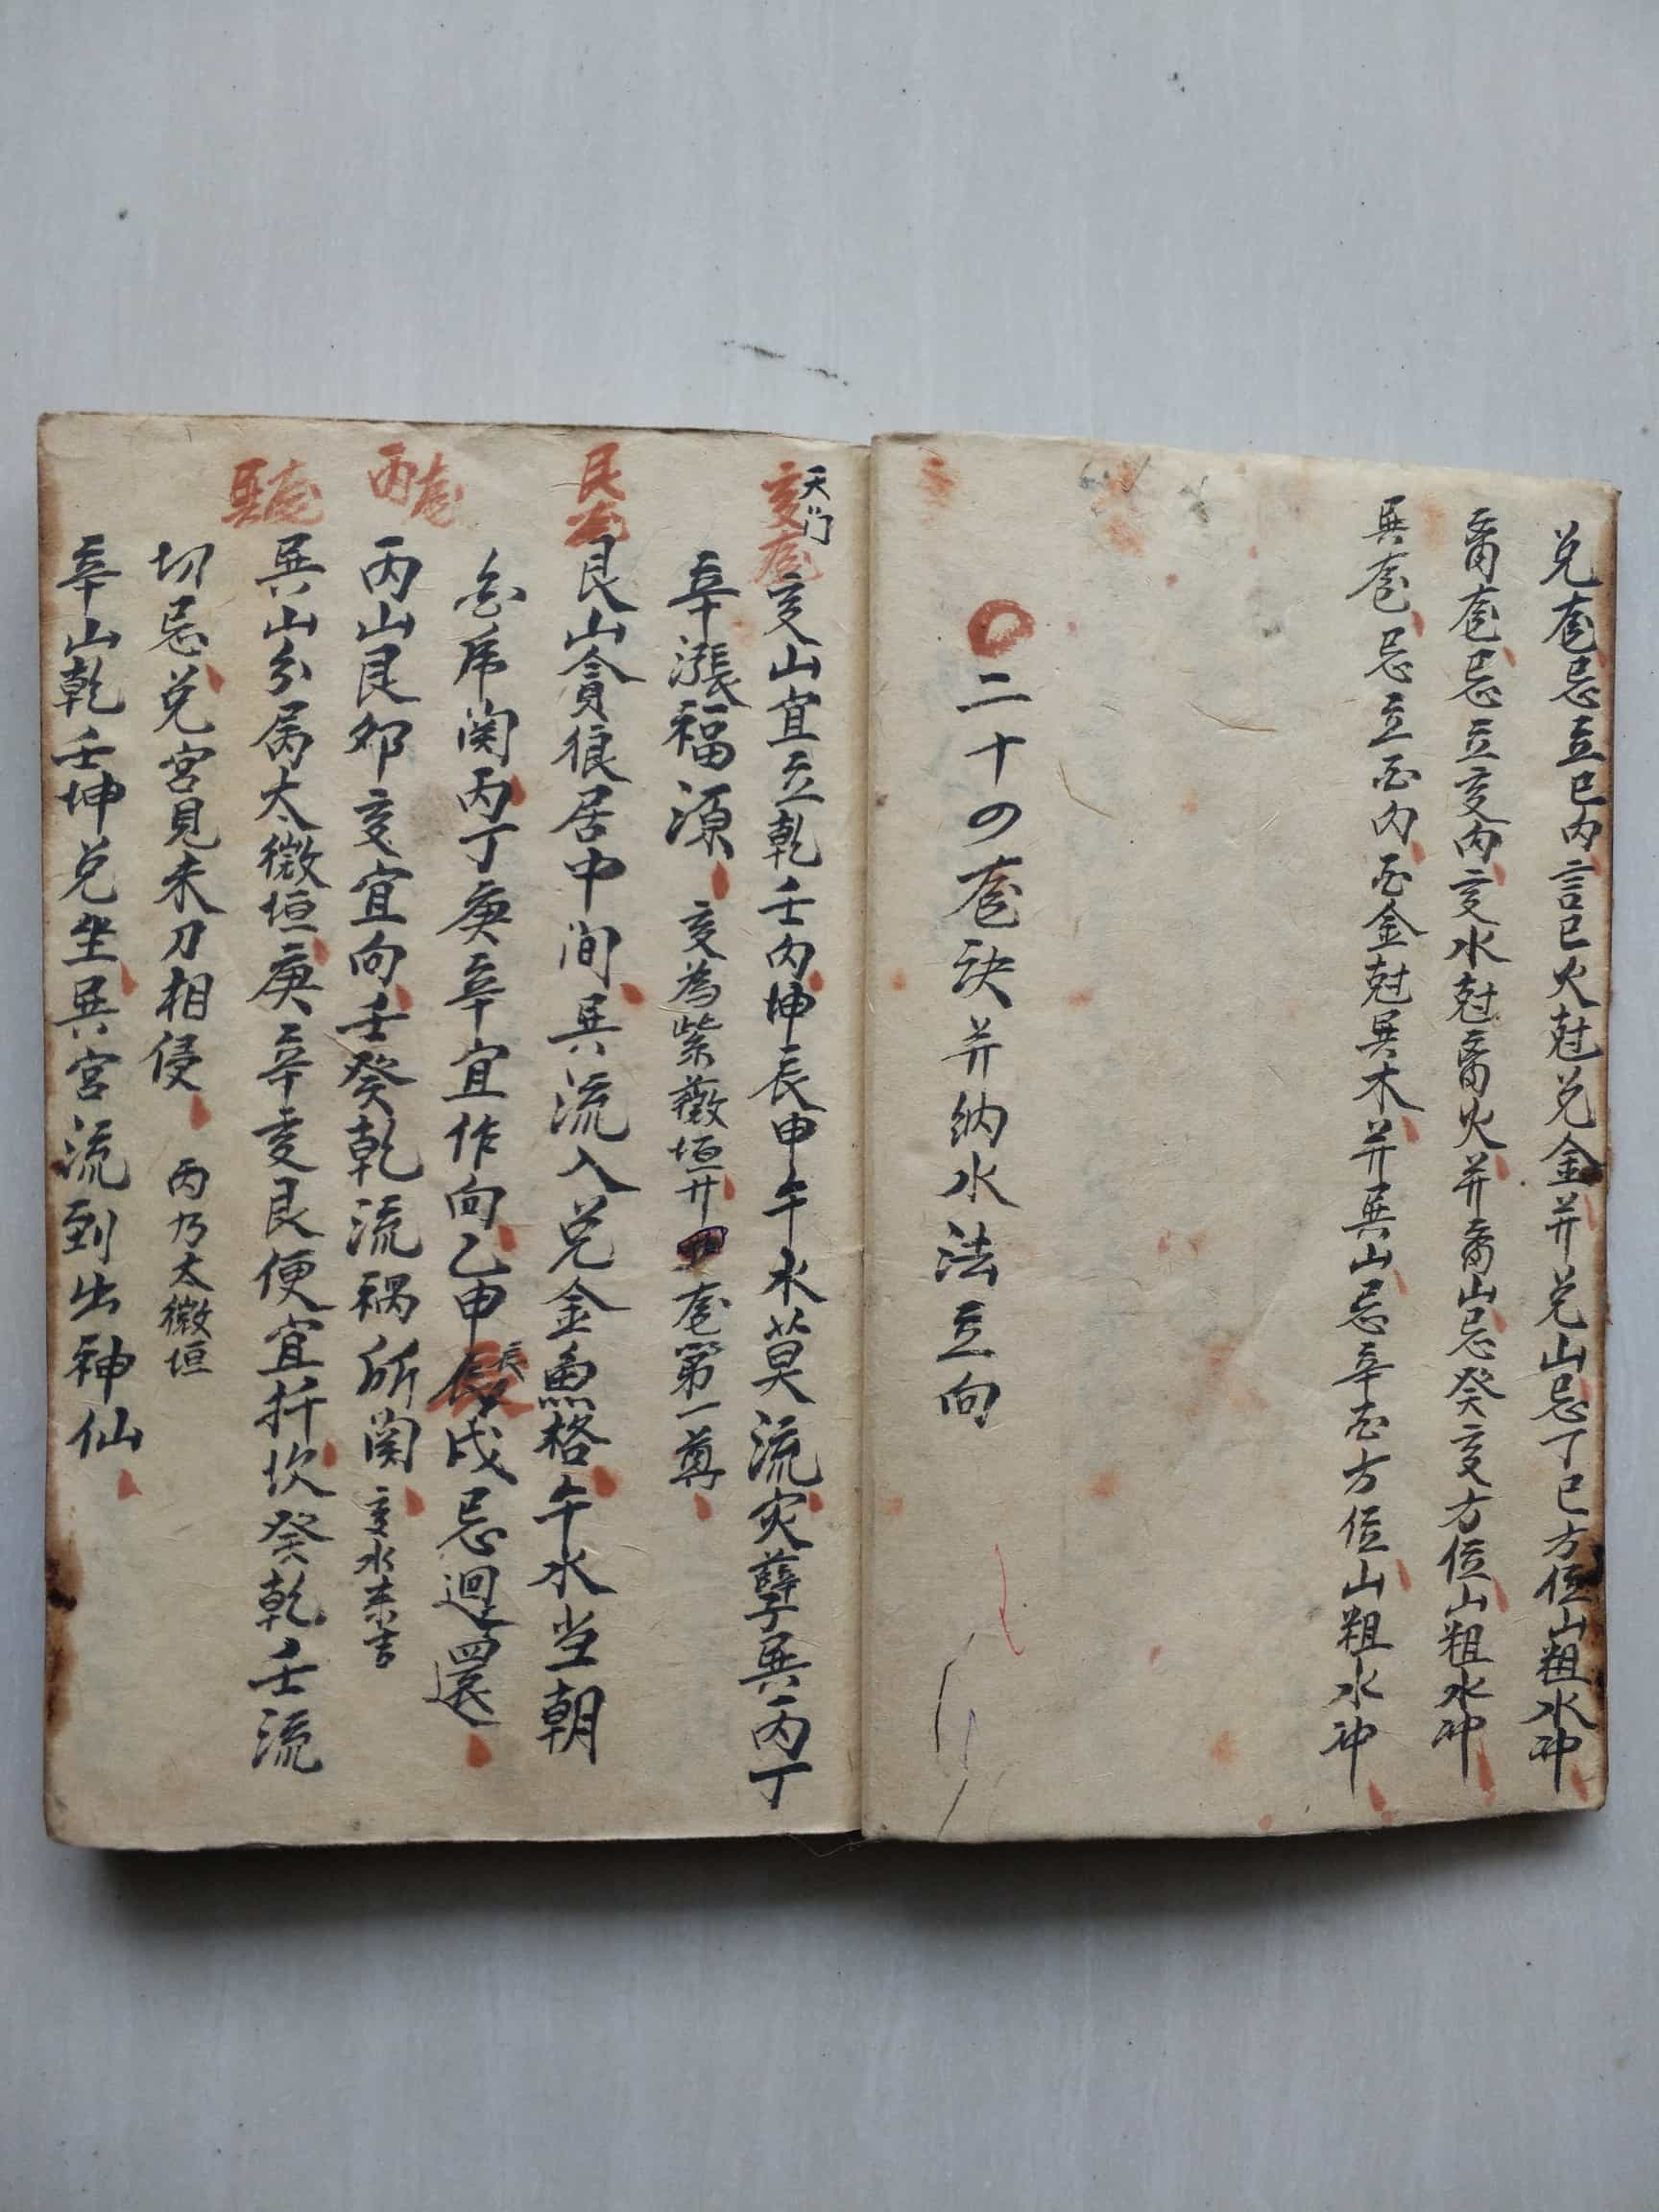 兑竜忌立巳内言巳火尅兑金并兑山忌丁巳方位山粗水冲
竜忌立亥内亥水尅火并山忌癸亥方位山粗水冲
巽竜忌立酉内酉金尅巽木并巽山忌辛酉方位山粗水冲
二十四竜訣并納水法立向
天门
亥竜
亥山宜立乾壬内坤辰申午水莫流灾孽巽丙丁
辛漲福源 亥為紫薇垂廿四竜第一尊
艮竜
艮山貪狼居中间巽流入兑金魚格午水当朝
関丙丁庚辛宜作向乙申辰戌忌迴還
丙竜
丙山艮卯亥宜向壬癸乾流禍所関 亥水来吉
巽竜
巽山分属太微垣庚辛亥艮便宜扦坎癸乾壬流
切忌兑宮見未刀相侵 丙乃太微垣
辛山乾壬坤兑坐巽宮流到出神仙